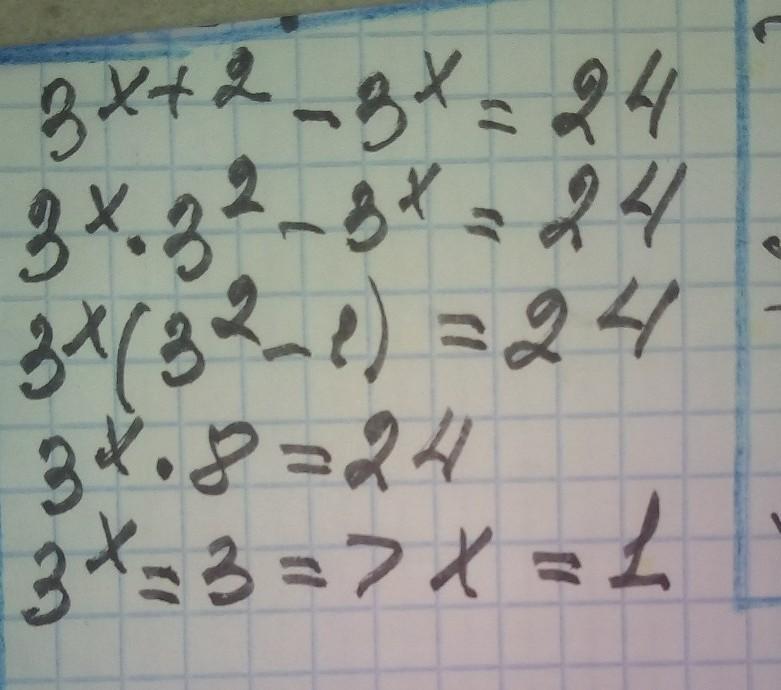 3^{x+2} - 3^x = 24
3^x · 3^2 - 3^x = 24
3^x (3^2 - 1) = 24
3^x · 8 = 24
3^x = 3 => x = 1